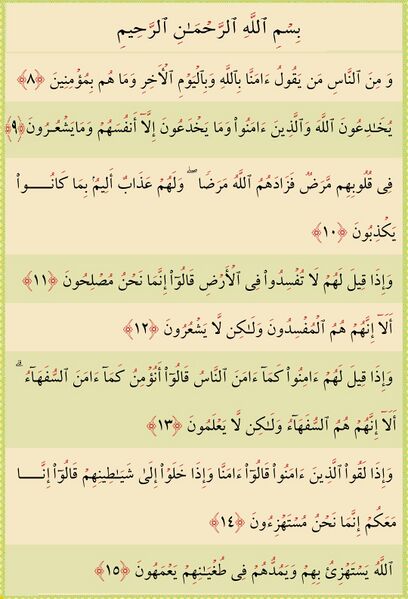 بِسْمِ ٱللَّهِ ٱلرَّحْمَـٰنِ ٱلرَّحِيمِ
وَ مِنَ ٱلنَّاسِ مَن يَقُولُ ءَامَنَّا بِٱللَّهِ وَبِٱلْيَوْمِ ٱلْأَخِرِ وَمَا هُم بِمُؤْمِنِينَ ﴿٨﴾
يُخَـٰدِعُونَ ٱللَّهَ وَٱلَّذِينَ ءَامَنُوا۟ وَمَا يَخْدَعُونَ إِلَّآ أَنفُسَهُمْ وَمَايَشْعُرُونَ ﴿٩﴾
فِى قُلُوبِهِم مَّرَضٌ فَزَادَهُمُ ٱللَّهُ مَرَضًا ۖ وَلَهُمْ عَذَابٌ أَلِيمٌۢ بِمَا كَانُـــوا۟
يَكْذِبُونَ ﴿١٠﴾
وَإِذَا قِيلَ لَهُمْ لَا تُفْسِدُوا۟ فِى ٱلْأَرْضِ قَالُوٓا۟ إِنَّمَا نَحْنُ مُصْلِحُونَ ﴿١١﴾
أَلَآ إِنَّهُمْ هُمُ ٱلْمُفْسِدُونَ وَلَـٰكِن لَّا يَشْعُرُونَ ﴿١٢﴾
وَإِذَا قِيلَ لَهُمْ ءَامِنُوا۟ كَمَآ ءَامَنَ ٱلنَّاسُ قَالُوٓا۟ أَنُؤْمِنُ كَمَآ ءَامَنَ ٱلسُّفَهَآءُ ۗ
أَلَآ إِنَّهُمْ هُمُ ٱلسُّفَهَآءُ وَلَـٰكِن لَّا يَعْلَمُونَ ﴿١٣﴾
وَإِذَا لَقُوا۟ ٱلَّذِينَ ءَامَنُوا۟ قَالُوٓا۟ ءَامَنَّا وَإِذَا خَلَوْا۟ إِلَىٰ شَيَـٰطِينِهِمْ قَالُوٓا۟ إِنَّـــا
مَعَكُمْ إِنَّمَا نَحْنُ مُسْتَهْزِءُونَ ﴿١٤﴾
ٱللَّهُ يَسْتَهْزِئُ بِهِمْ وَيَمُدُّهُمْ فِى طُغْيَـٰنِهِمْ يَعْمَهُونَ ﴿١٥﴾